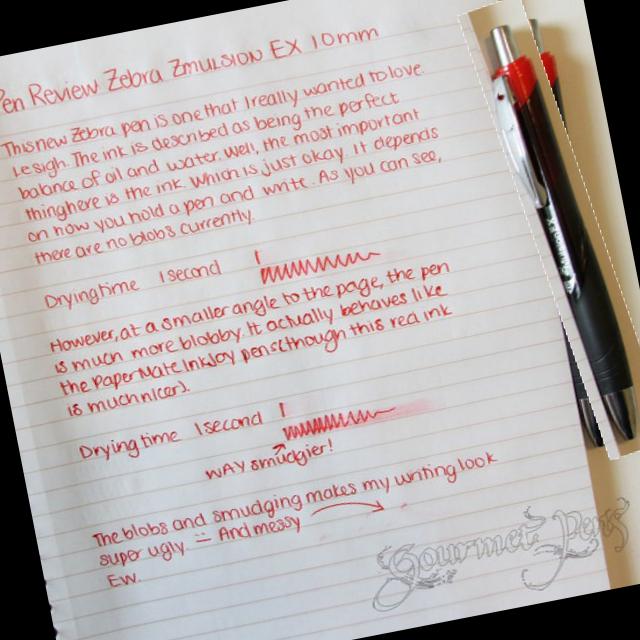 Pen Review Zebra Zmulsion EX 10mm
This new Zebra pen is one that I really wanted to love.
Le sigh. The ink is described as being the perfect
balance of oil and water. Well, the most important
thing here is the ink. Which is just okay. It depends
on how you hold a pen and write. As you can see,
there are no blobs currently.
Drying time 1 second
However, at a smaller angle to the page, the pen
is much more blobby. It actually behaves like
the PaperMate InkJoy pens (though this red ink
is much nicer).
Drying time 1 second
WAY smudgier!
The blobs and smudging makes my writing look
super ugly. :( And messy
Ew.
Gourmet Pens